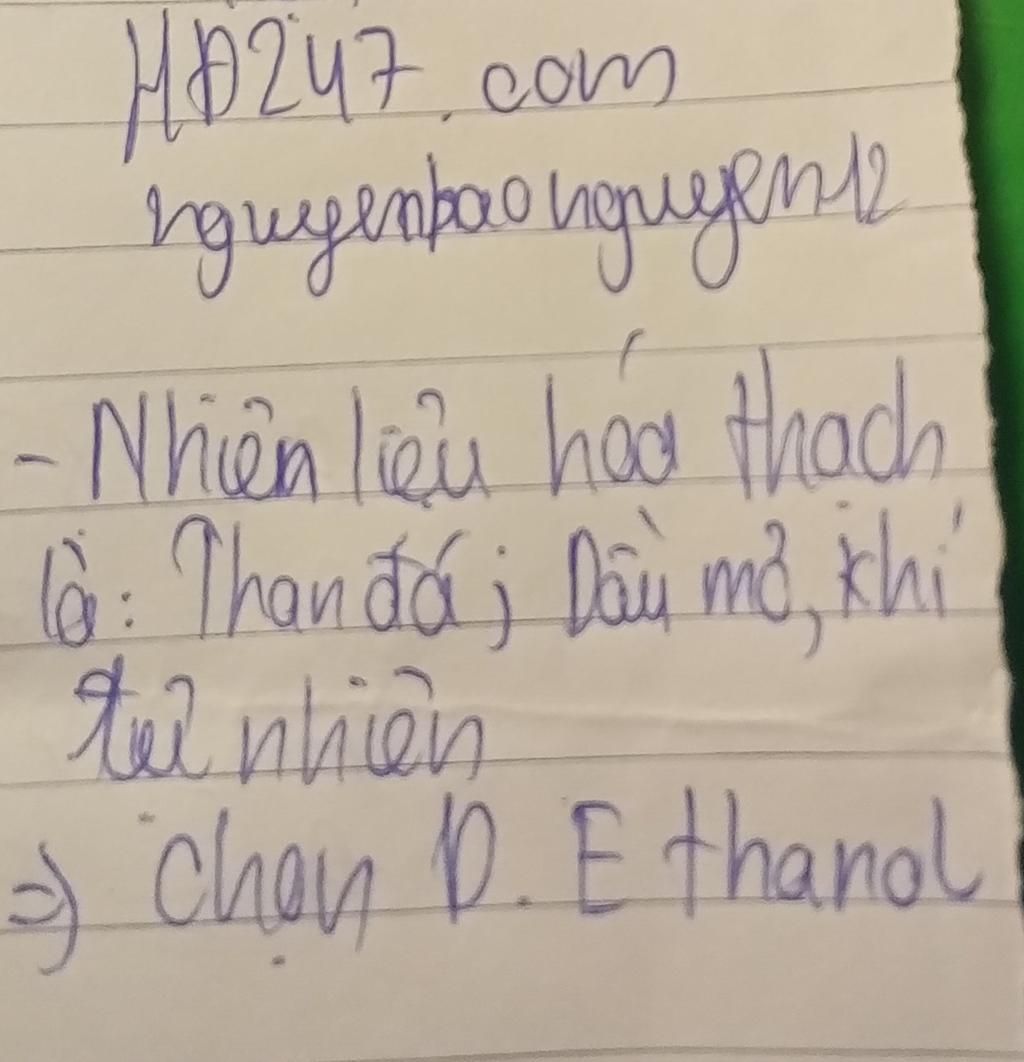 HĐ247.com
nguyenbaonguyen12
- Nhiên liệu hóa thach
là: Than đá; Dầu mỏ, khí
tuỉ nhiên
=> Chọn D. Ethanol